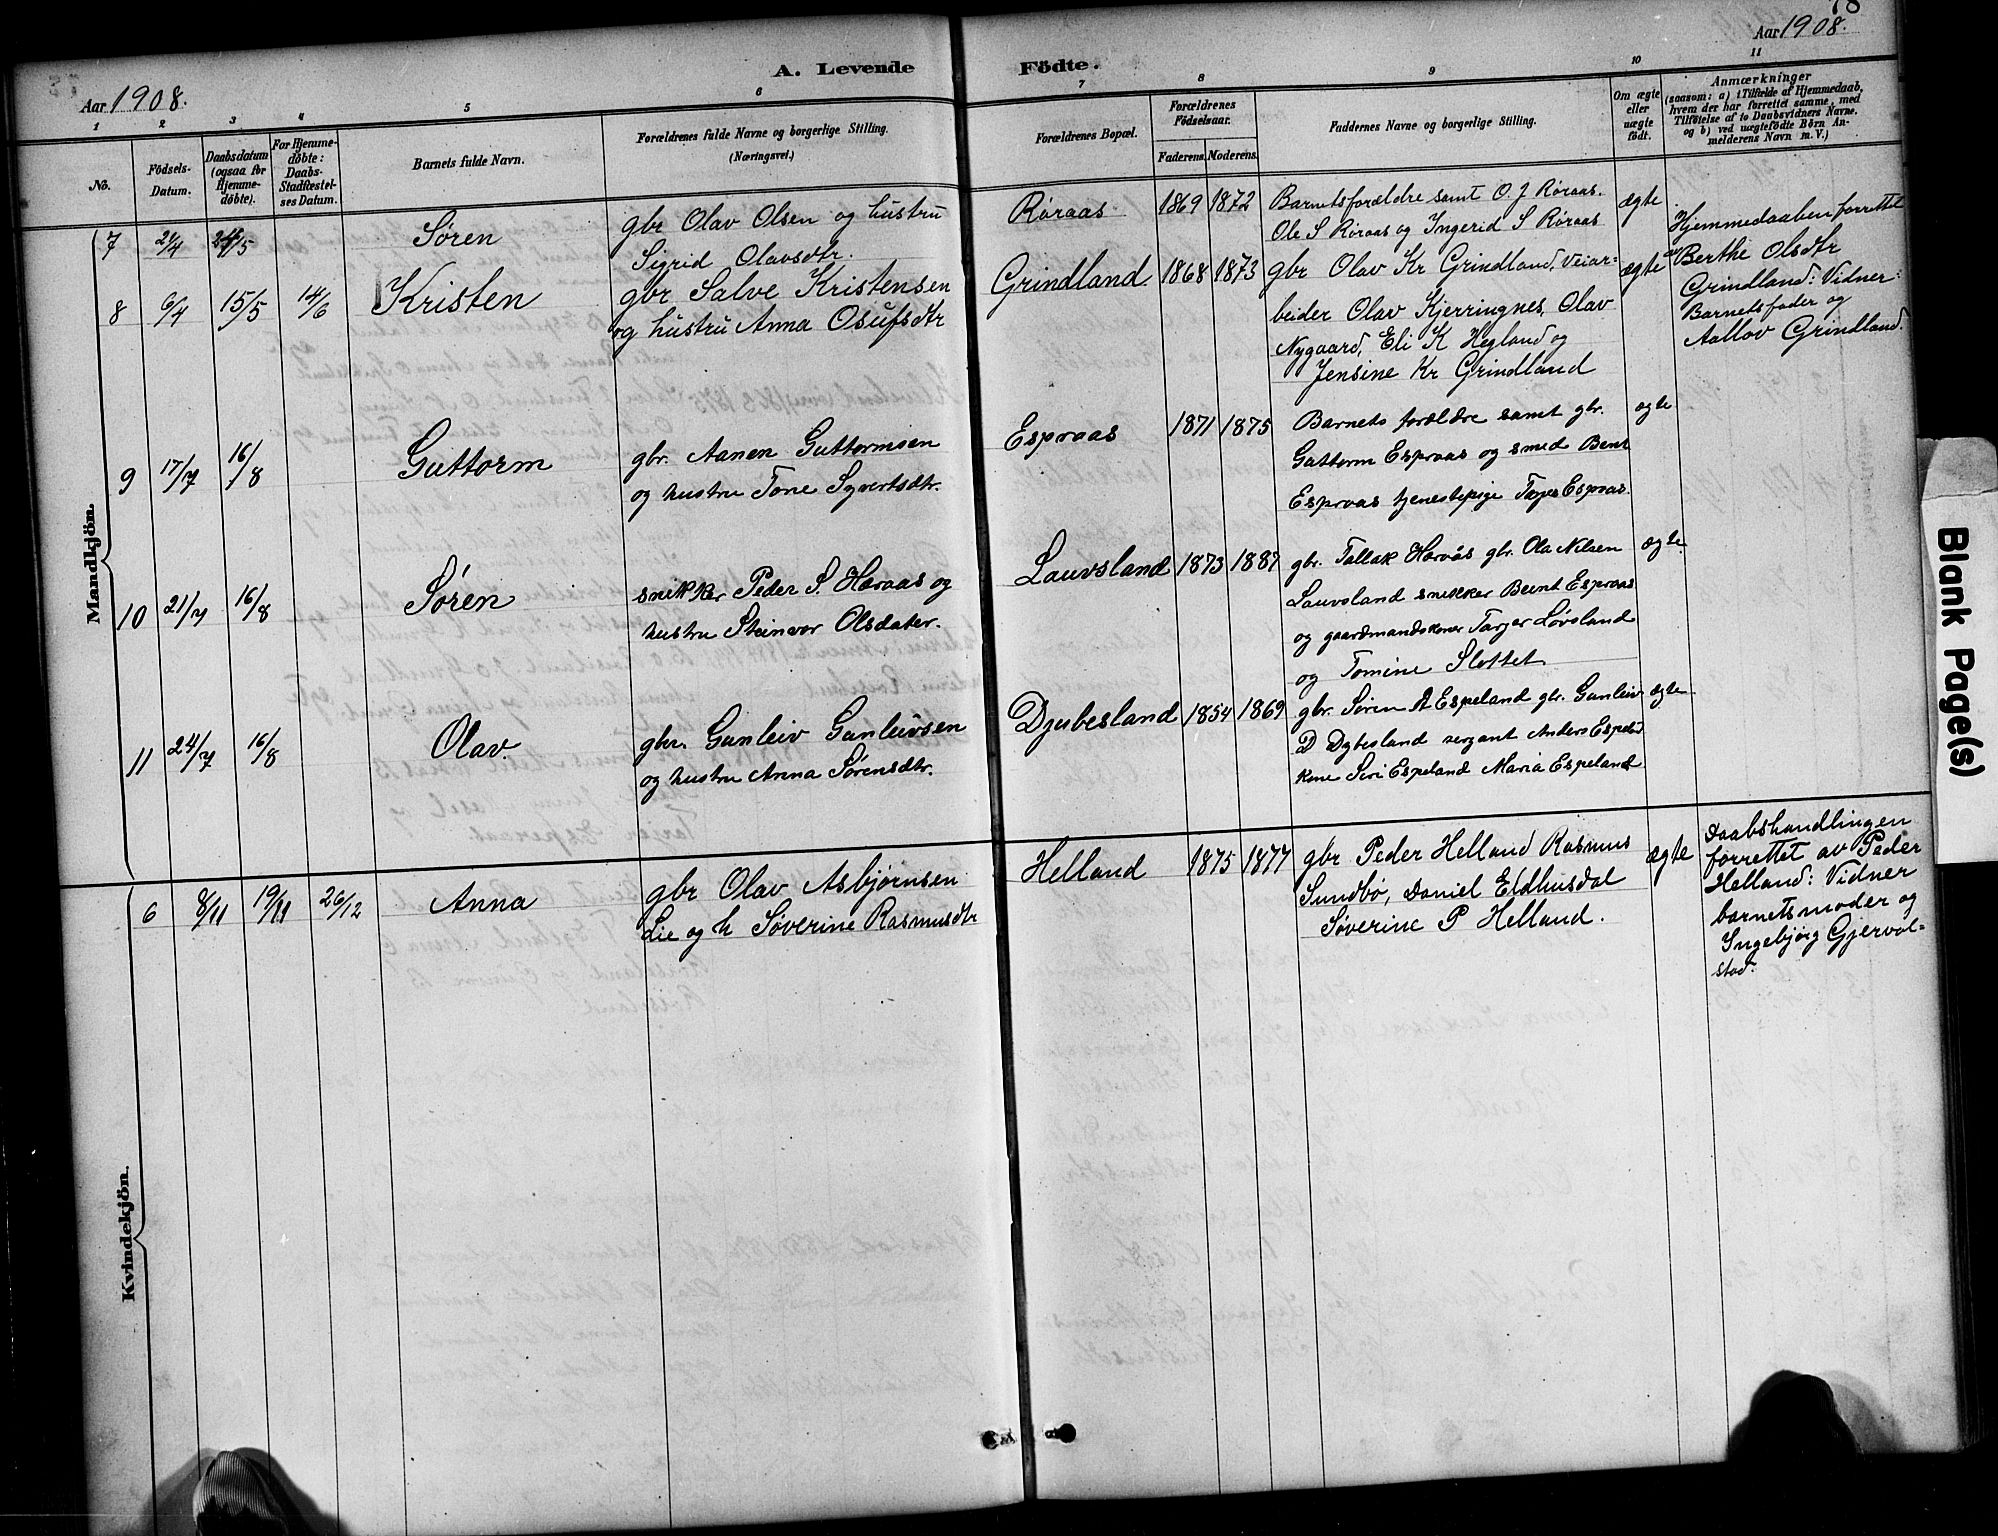 78
Aar 1908.
A. Levende Födte.
Aar 1908.
1 2 3 4 5 6 7 8 9 10 11
No.
Födsels-Datum.
Daabsdatum (ogsaa for Hjemme-döbte).
For Hjemme-döbte: Daabs-Stadfæstel-ses Datum.
Barnets fulde Navn.
Forældrenes fulde Navne og borgerlige Stilling.
(Næringsvei.)
Forældrenes Bopæl.
Forældrenes Födselsaar.
Faderens. Moderens.
Faddernes Navne og borgerlige Stilling.
Om ægte eller uægte födt.
Anmærkninger
(saasom: a) i Tilfælde af Hjemmedaab,
hvem der har forrettet samme, med
Tilföielse af to Daabsvidners Navne,
og b) ved uægtefödte Börn An-
melderens Navn m. V.)
Mandkjön.
7 2/4 24/5 Søren
gbr Olav Olsen og hustru
Sigrid Olavsdtr.
Røraas 1869 1872
Barnets forældre samt O. J Røraas.
Ole S Røraas og Ingerid S Røraas
ægte
8 6/4 15/5 14/6 Kristen
gbr Salve Kristensen
og hustru Anna Osufsdtr
Grindland 1868 1873
gbr Olav Kr Grindland, Veiar-
beider Olav Kjerringnes, Olav
Nygaard, Eli K Hegland og
Jensine Kr Grindland
ægte
Hjemmedaaben forrettet
av Berthe Olsdtr
Grindland: Vidner:
Barnets fader og
Aallov Grindland.
9 17/7 16/8 Guttorm
gbr. Aanen Guttormsen
og hustru Tone Syvertsdtr.
Espraas 1871 1875
Barnets forældre samt gbr.
Guttorm Espraas og smed Bent
Espraas tjenestepige Tarjer Espraas.
ægte
10 21/7 16/8 Søren
snekker Peder S. Høraas og
hustru Steinvor Olsdater.
Lauvsland 1873 1887
gbr. Tallak Horvås gbr. Ola Nilsen
Lauvsland snekker Beint Espraas
og gaardmandskoner Tarjer Løvsland
og Tomine Slottet
ægte.
11 24/7 16/8 Olav.
gbr. Gunleiv Gunleivsen
og hustru Anna Sørensdtr.
Djubesland 1854 1869
gbr. Søren A Espeland gbr. Gunleiv
D Dybesland sergant Anders Espeld
kone Siri Espeland Maria Espeland
ægte
Kvindekjön.
6 8/11 19/11 26/12 Anna
gbr Olav Asbjørnsen
Lie og h Søverine Rasmusdtr
Helland 1875 1877
gbr Peder Helland Rasmus
Sundbø, Daniel Eldhusdal
Søverine P Helland.
ægte
Daabshandlingen
forrettet av Peder
Helland: Vidner
barnets moder og
Ingebjørg Gjervol-
stad.
Blank Page(s)